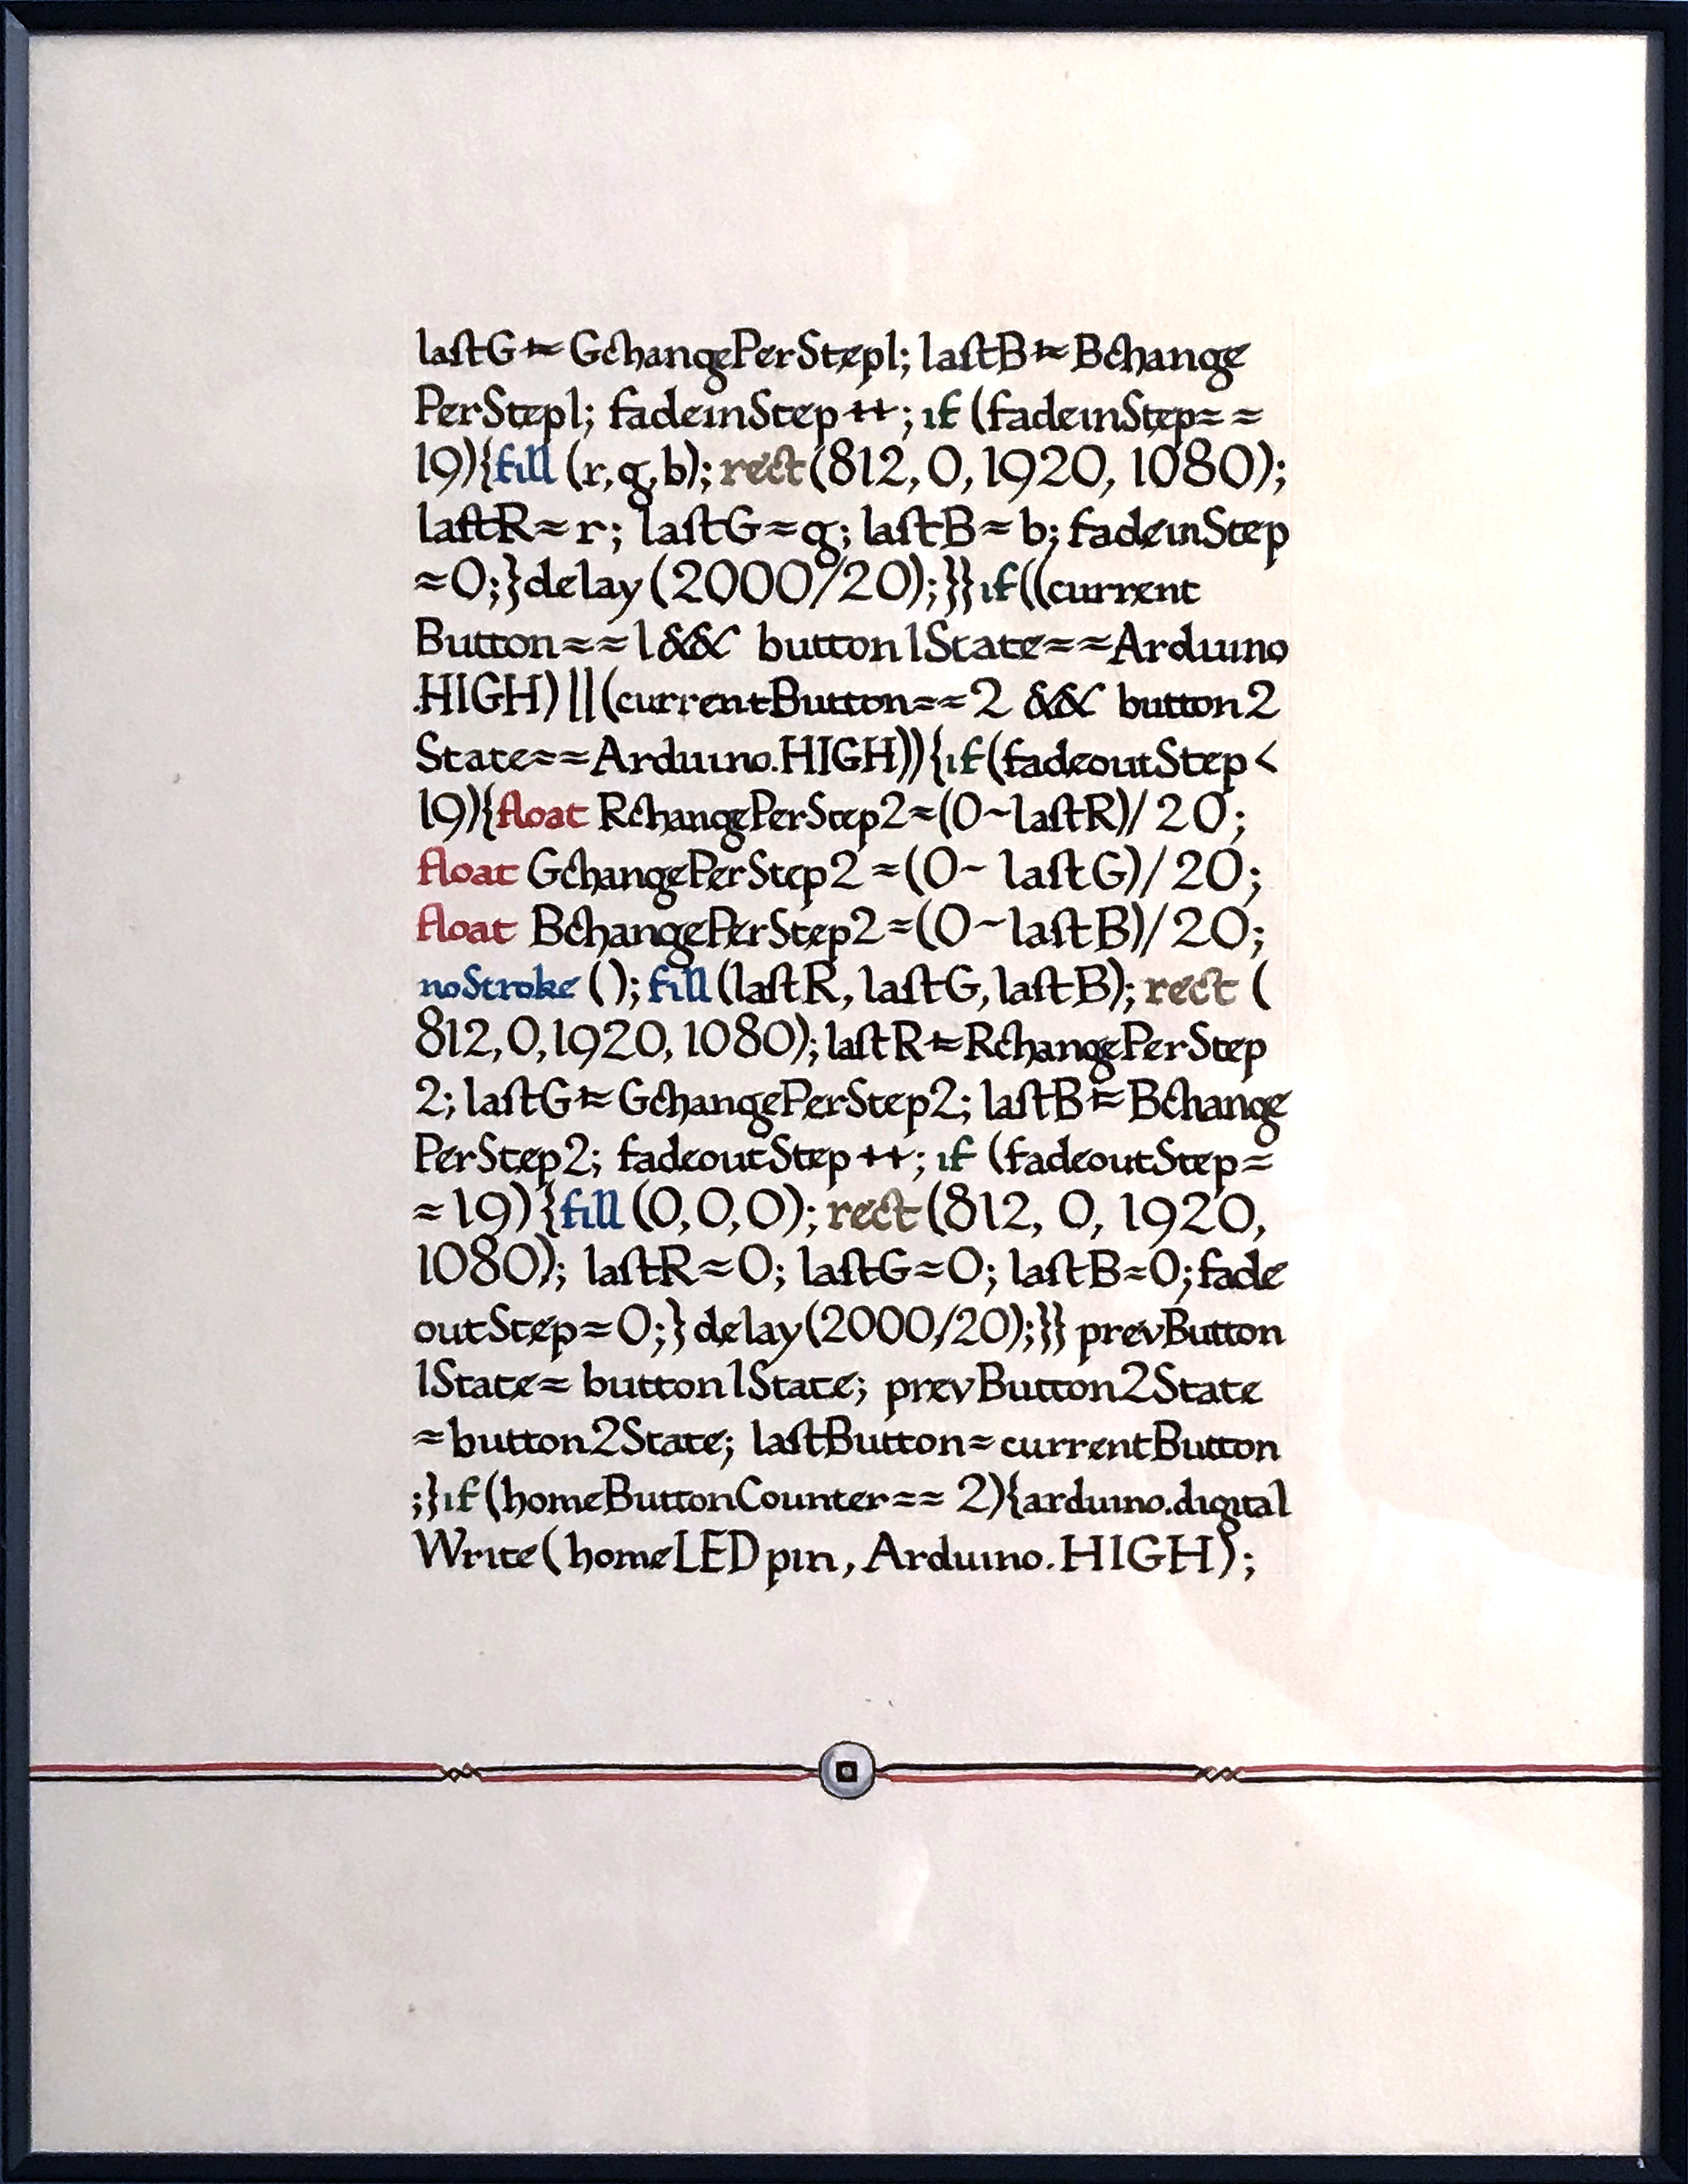 lastG+=GchangePerStep1; lastB+=Bchange
PerStep1; fadeinStep++; if (fadeinStep==
19){fill (r,g,b); rect(812,0,1920,1080);
lastR=r; lastG=g; lastB=b; fadeinStep
=0;}delay(2000/20);}}if((current
Button==1&& button1State==Arduino
.HIGH)||(currentButton==2 && button2
State==Arduino.HIGH)){if(fadeoutStep<
19){float RchangePerStep2=(0-lastR)/20;
float GchangePerStep2=(0-lastG)/20;
float BchangePerStep2=(0-lastB)/20;
noStroke(); fill(lastR,lastG,lastB); rect(
812,0,1920,1080); lastR+=RchangePerStep
2; lastG+=GchangePerStep2; lastB+=Bchange
PerStep2; fadeoutStep++; if (fadeoutStep=
=19){fill(0,0,0); rect(812, 0, 1920,
1080); lastR=0; lastG=0; lastB=0;fade
outStep=0;}delay(2000/20);}} prevButton
1State=button1State; prevButton2State
=button2State; lastButton=currentButton
;}if(homeButtonCounter==2){arduino.digital
Write(homeLEDpin, Arduino.HIGH);